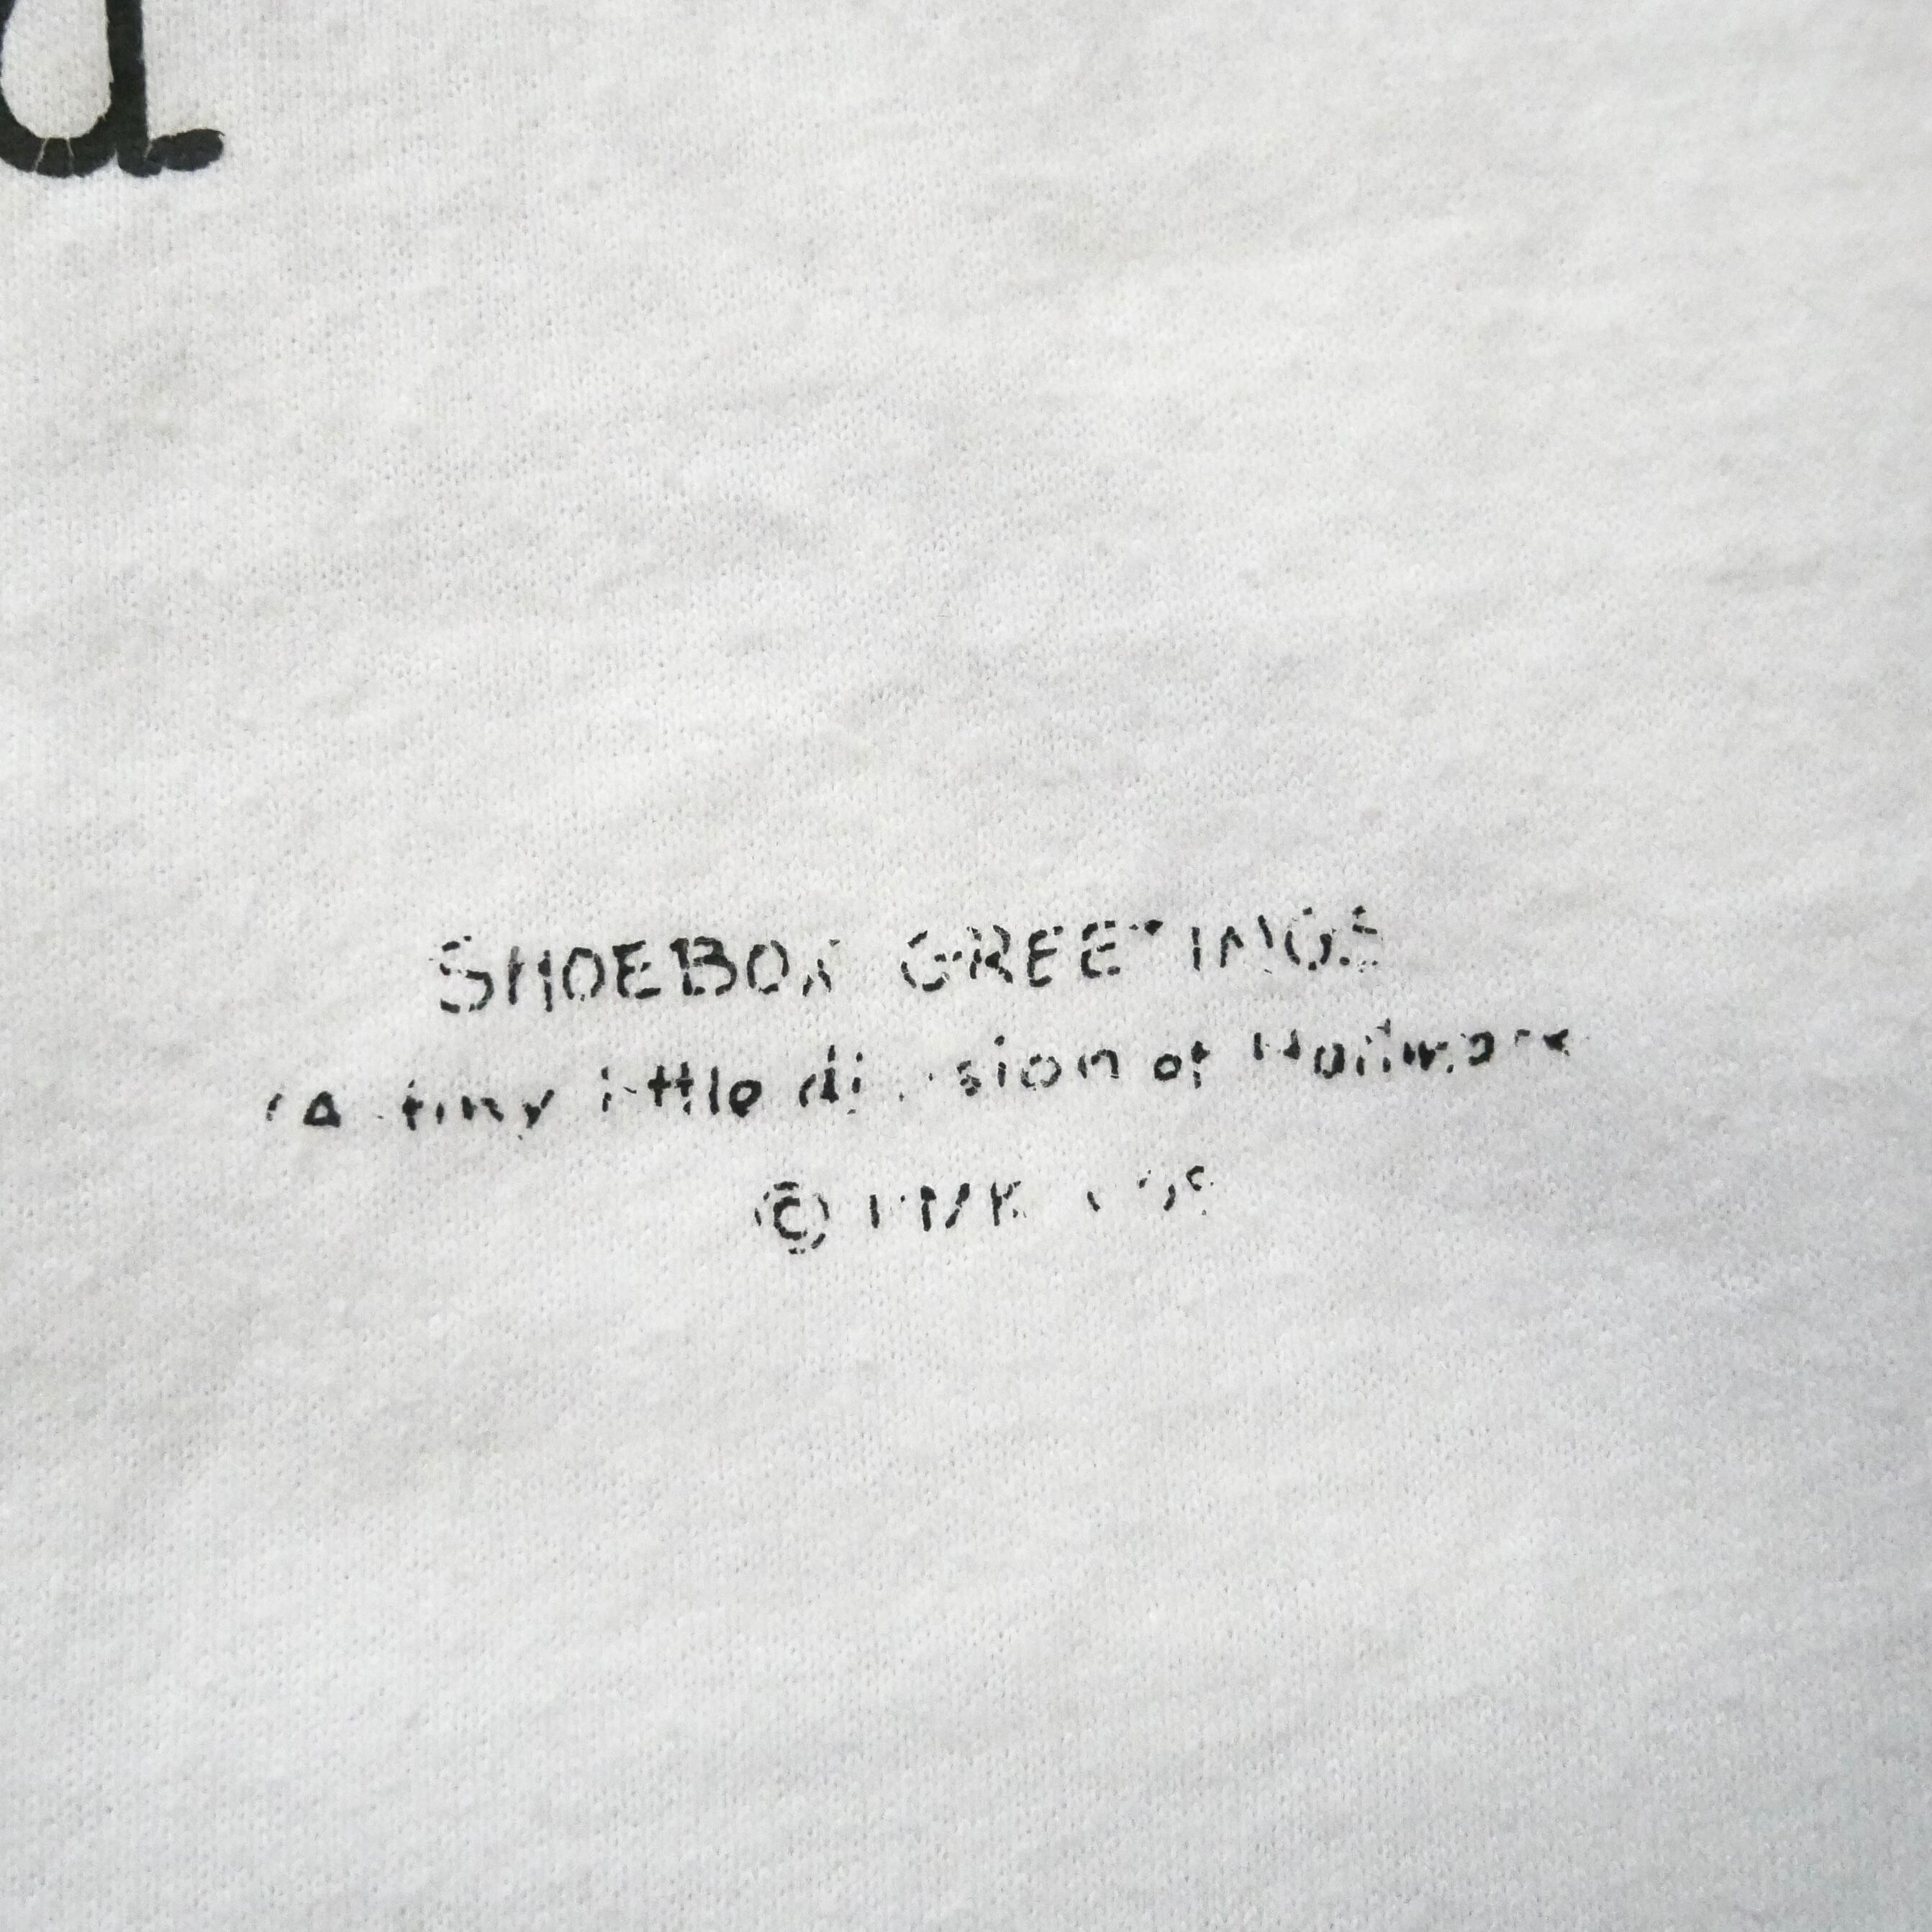 SHOEBOX GREETINGS
(A tiny little division of Hallmark
©